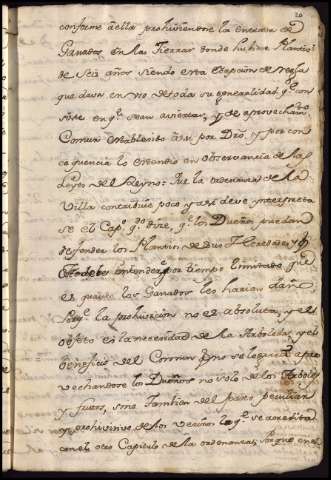 20
conforme à ella prohiviendose la entrada de
Ganados en las Tierras donde hubiere Plantios
de Seis años siendo esta excepcion de regla
que daver en no de toda su generalidad qe con
siste en qe sean avientas, y de aprovecham.to
Comun establecido asi por Dro. y por con
sequencia lo extendio en observancia de las
Leyes del Reyno: Que la ordenanza de la
Villa contribuie poco y asi deve interpreta
se el Cap.o qdo dize, qe los Dueños puedan
defender los Plantios de dies Heredades, y
entender por tiempo limitado que
es quanto los Ganados les hacian daño
Porqe. la prohivicion no es absoluta, y el
objeto es la necesidad de la Arboleda, y el
beneficio del Comun qe no se lograra apro
vechandose los Dueños no solo de los Arboles
y frutos, sino tambien del pasto peculiar
y prohivitivo de los vecinos lo qe se acredita
con el otro Capitulo de la ordenanza, porque en el